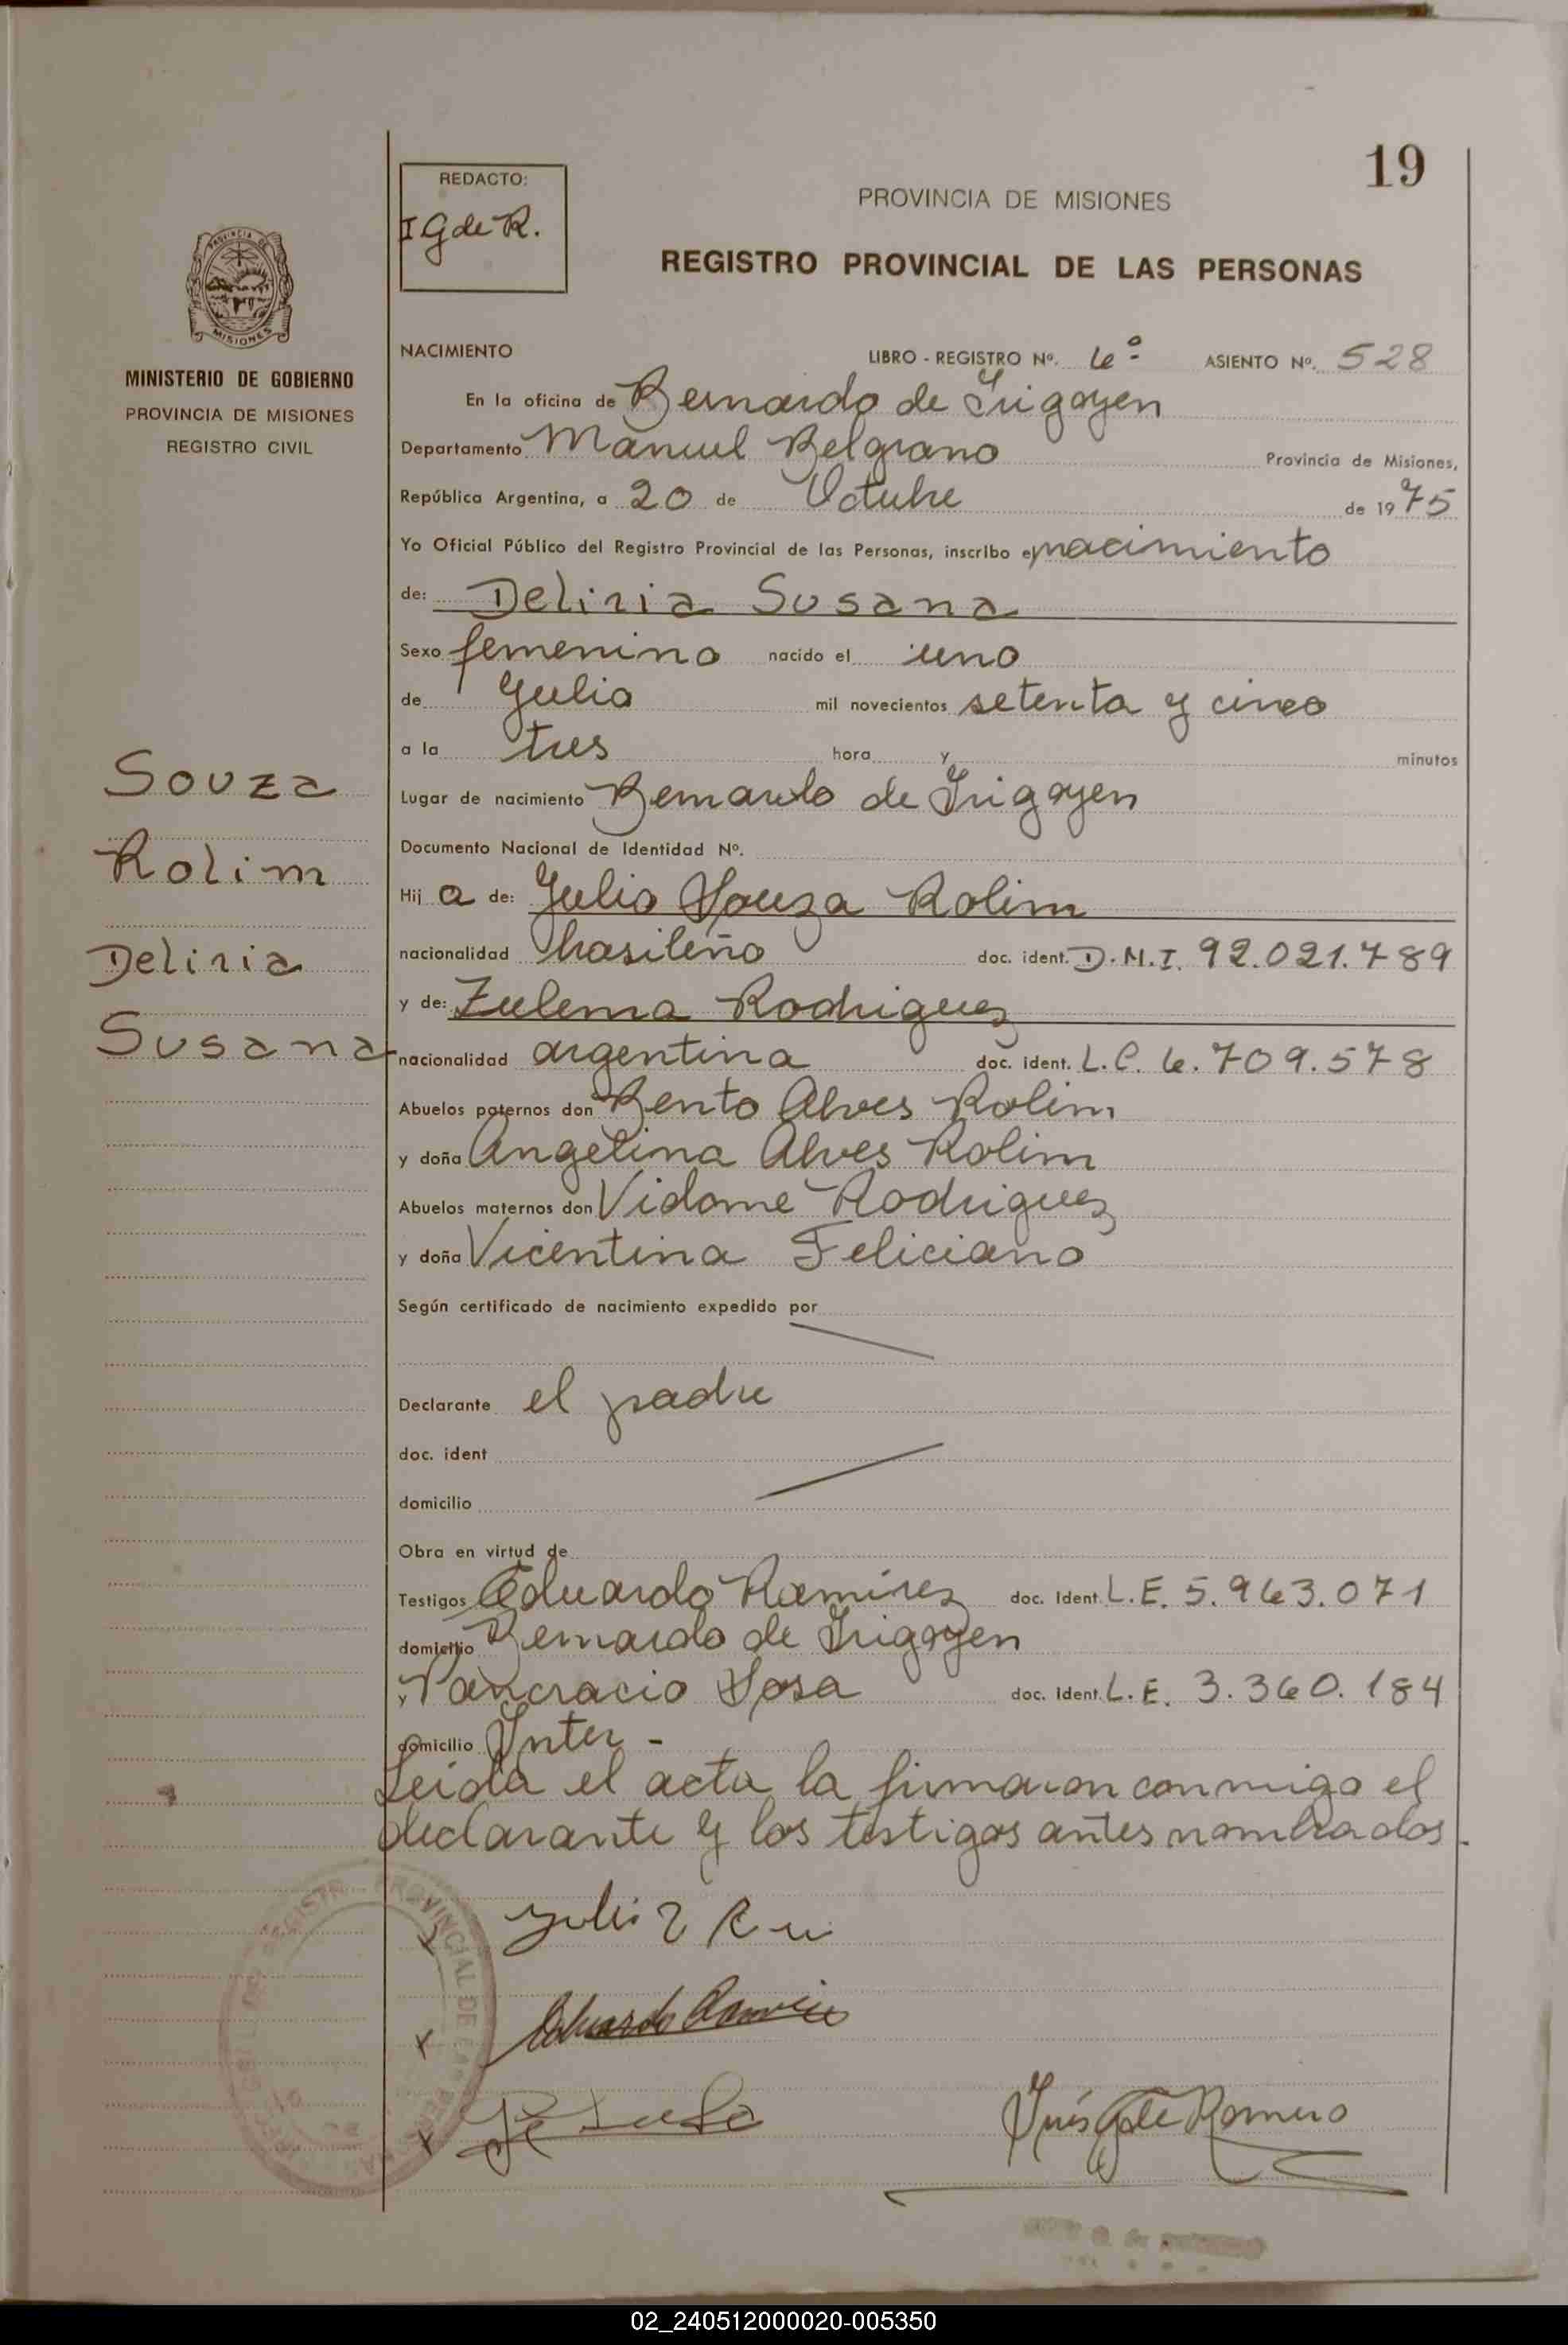 19
REDACTO:
I G de R.
PROVINCIA DE MISIONES
REGISTRO PROVINCIAL DE LAS PERSONAS
PROVINCIA DE
MISIONES
MINISTERIO DE GOBIERNO
PROVINCIA DE MISIONES
REGISTRO CIVIL
NACIMIENTO LIBRO - REGISTRO Nº. 6º ASIENTO Nº. 528
En la oficina de Bernardo de Irigoyen
Departamento Manuel Belgrano Provincia de Misiones,
República Argentina, a 20 de Octubre de 1975
Yo Oficial Público del Registro Provincial de las Personas, inscribo el nacimiento
de: Deliria Susana
Sexo femenino nacido el uno
de Julio mil novecientos setenta y cinco
a la tres hora y minutos
Lugar de nacimiento Bernardo de Irigoyen
Documento Nacional de Identidad Nº.
Souza
Rolim
Deliria
Susana
Hij a de: Julio Souza Rolim
nacionalidad brasileño doc. ident. D.N.I. 92.021.789
y de: Zulema Rodriguez
nacionalidad argentina doc. ident. L.C. 6.709.578
Abuelos paternos don Bento Alves Rolim
y doña Angelina Alves Rolim
Abuelos maternos don Vidome Rodriguez
y doña Vicentina Feliciano
Según certificado de nacimiento expedido por
Declarante el padre
doc. ident
domicilio
Obra en virtud de
Testigos Eduardo Ramirez doc. ident. L.E. 5.963.071
domicilio Bernardo de Irigoyen
y Pancracio Sosa doc. ident. L.E. 3.360.184
domicilio Inter -
Leida el acta la firmaron conmigo el
declarante y los testigos antes nombrados.
Eduardo Ramirez
Inés G de Romero
02_240512000020-005350